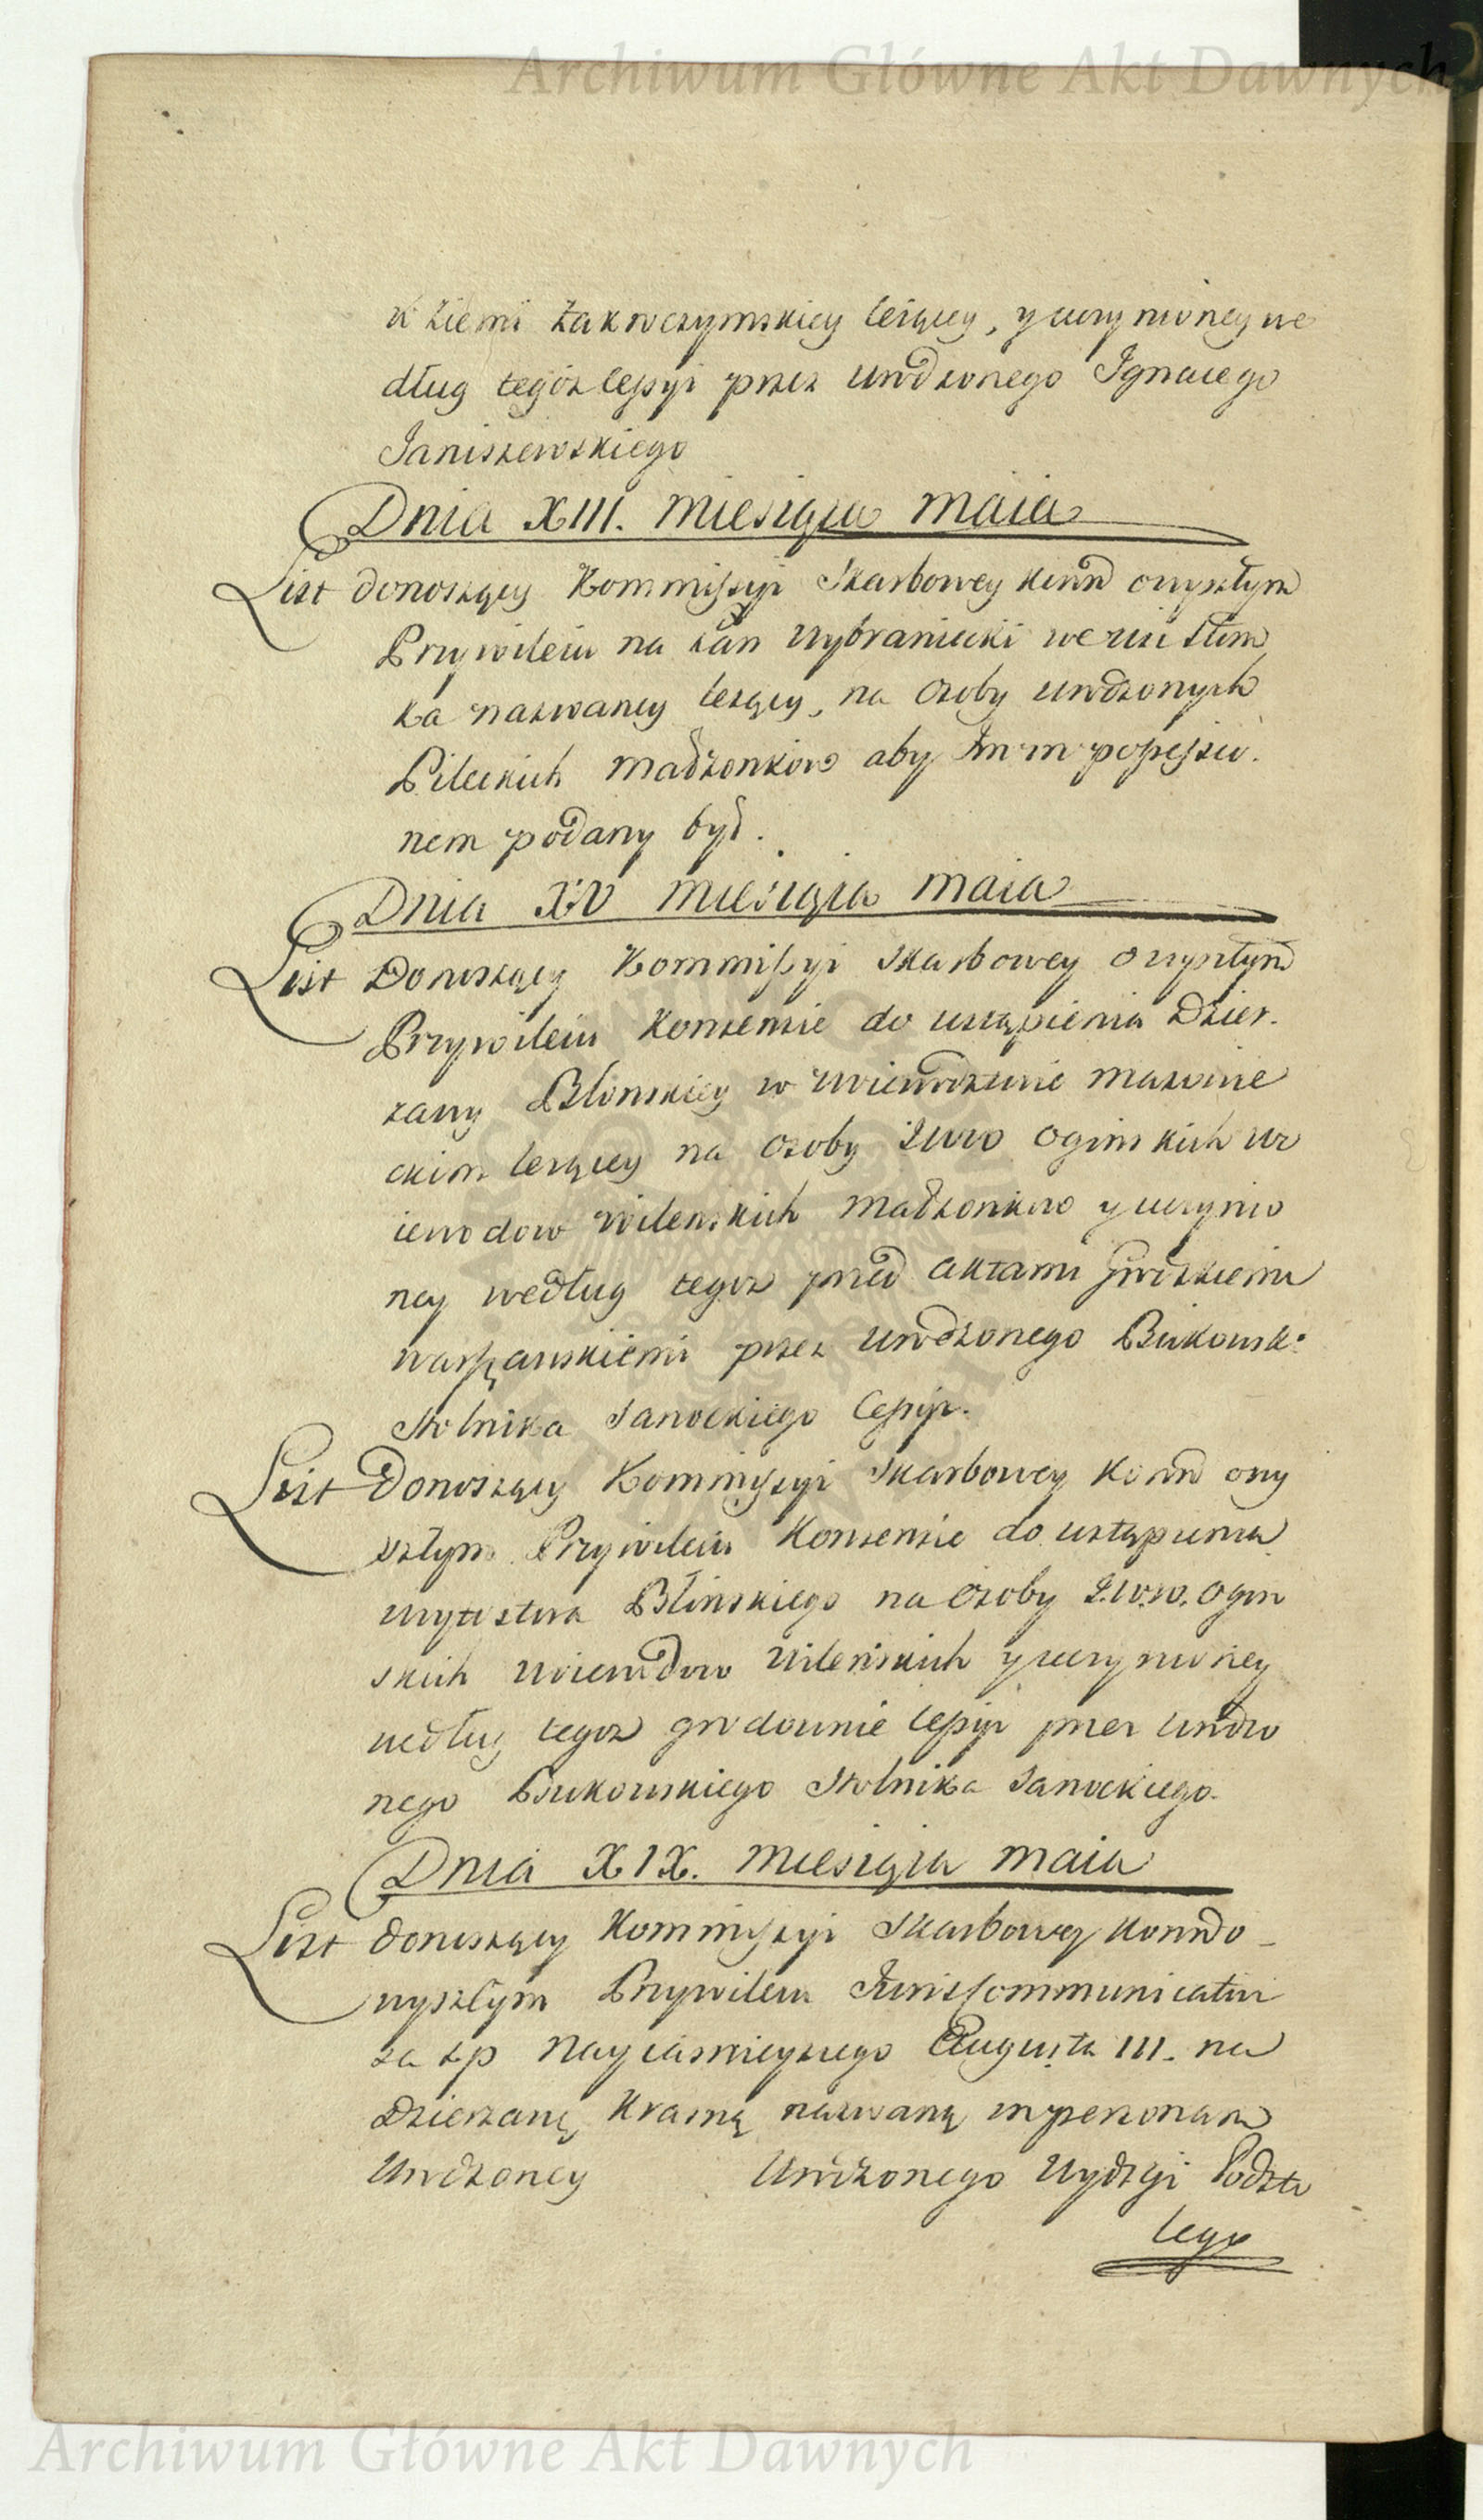 Archiwum Główne Akt Dawnych
w Ziemi Zakroczymskiey leżącey, y uczynioney we
dług tegóż cessyi przez urodzonego Ignacego
Janiszewskiego
Dnia XIII. Miesiąca Maia
List donoszący Kommissyi Skarbowey Koron o wyszłym
Przywileiu na łan Wybraniecki we wsi
ka nazwaney leżący, na Osoby urodzonych
Pileckich Małżonków aby Im in
nem podany był.
Dnia XV Miesiąca Maia
List Donoszący Kommissyi Skarbowey o wyszłym
Przywileiu Konsensie do ustąpienia Dzier-
zawy Błonskiey w Woiewodztwie Mazowie
ckim leżącey na Osoby Ogińskich Wo
iewodow Wilenskich Małżonkow y uczynio
ney według tegoż przed Aktami Grodzkiemi
Warszawskiemi przez Urodzonego Bukowsk:
Stolnika Sanockiego Cessyi.
List Donoszący Kommissyi Skarbowey Koron o wy
szłym Przywileiu Konsensie do ustąpienia
Woytostwa Błonskiego na Osoby J.W.W. Ogin
skich Woiewodow Wileńskich y uczynioney
według tegoż grodownie cessyi przez Urodzo
nego Bukowskiego Stolnika Sanockiego.
Dnia XIX. Miesiąca Maia
List donoszący Kommissyi Skarbowey Koron o
wyszłym Przywileiu Juris Communicativi
za ś.p Nayiaśnieyszego Augusta III. na
Dzierżawę nazwaną in personam
Urodzoney Urodzonego Wydżgi Podsto
lego
Archiwum Główne Akt Dawnych